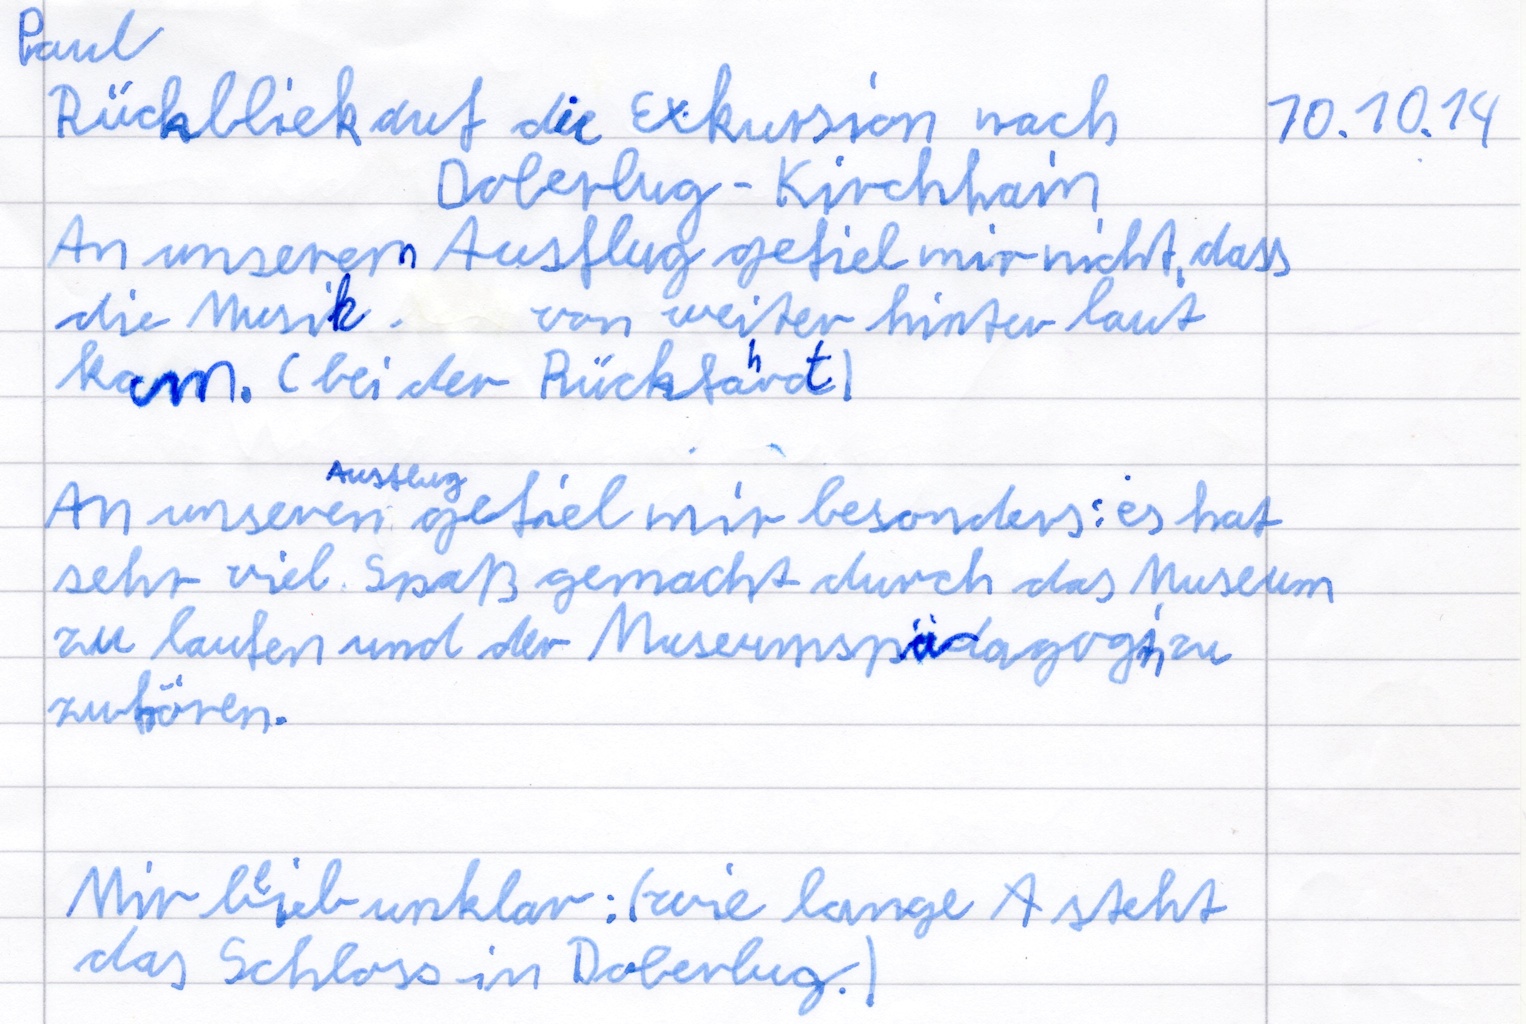 Paul
Rückbliek auf die Exkursion nach 10.10.14
Doberlug-Kirchhain
An unserem Ausflug gefiel mir nicht, dass
die Musik von weiter hinter laut
kam. (bei der Rückfahrt)
Ausflug
An unseren gefiel mir besonders: es hat
sehr viel Spaß gemacht durch das Museum
zu laufen und der Museumspädagogin zu
zuhören.
Mir blieb unklar: (wie lange steht
das Schloss in Doberlug.)